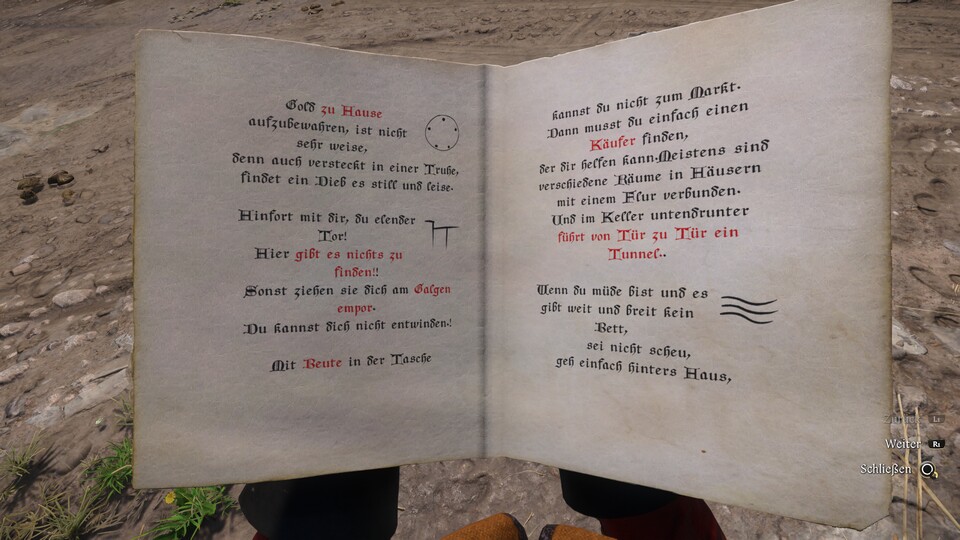 Gold zu Hause
aufzubewahren, ist nicht
sehr weise,
denn auch versteckt in einer Truhe,
findet ein Dieb es still und leise.
Hinfort mit dir, du elender
Tor!
Hier gibt es nichts zu
finden!!
Sonst ziehen sie dich am Galgen
empor.
Du kannst dich nicht entwinden!
Mit Beute in der Tasche
kannst du nicht zum Markt.
Dann musst du einfach einen
Käufer finden,
der dir helfen kann.Meistens sind
verschiedene Räume in Häusern
mit einem Flur verbunden.
Und im Keller untendrunter
führt von Tür zu Tür ein
Tunnel..
Wenn du müde bist und es
gibt weit und breit kein
Bett,
sei nicht scheu,
geh einfach hinters Haus,
Zurück L1
Weiter R1
Schließen